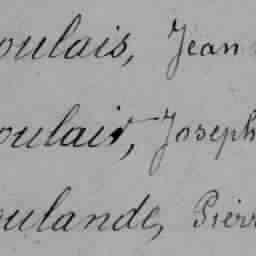 oulais, Jean
oulair, Joseph
oulande, Pierr